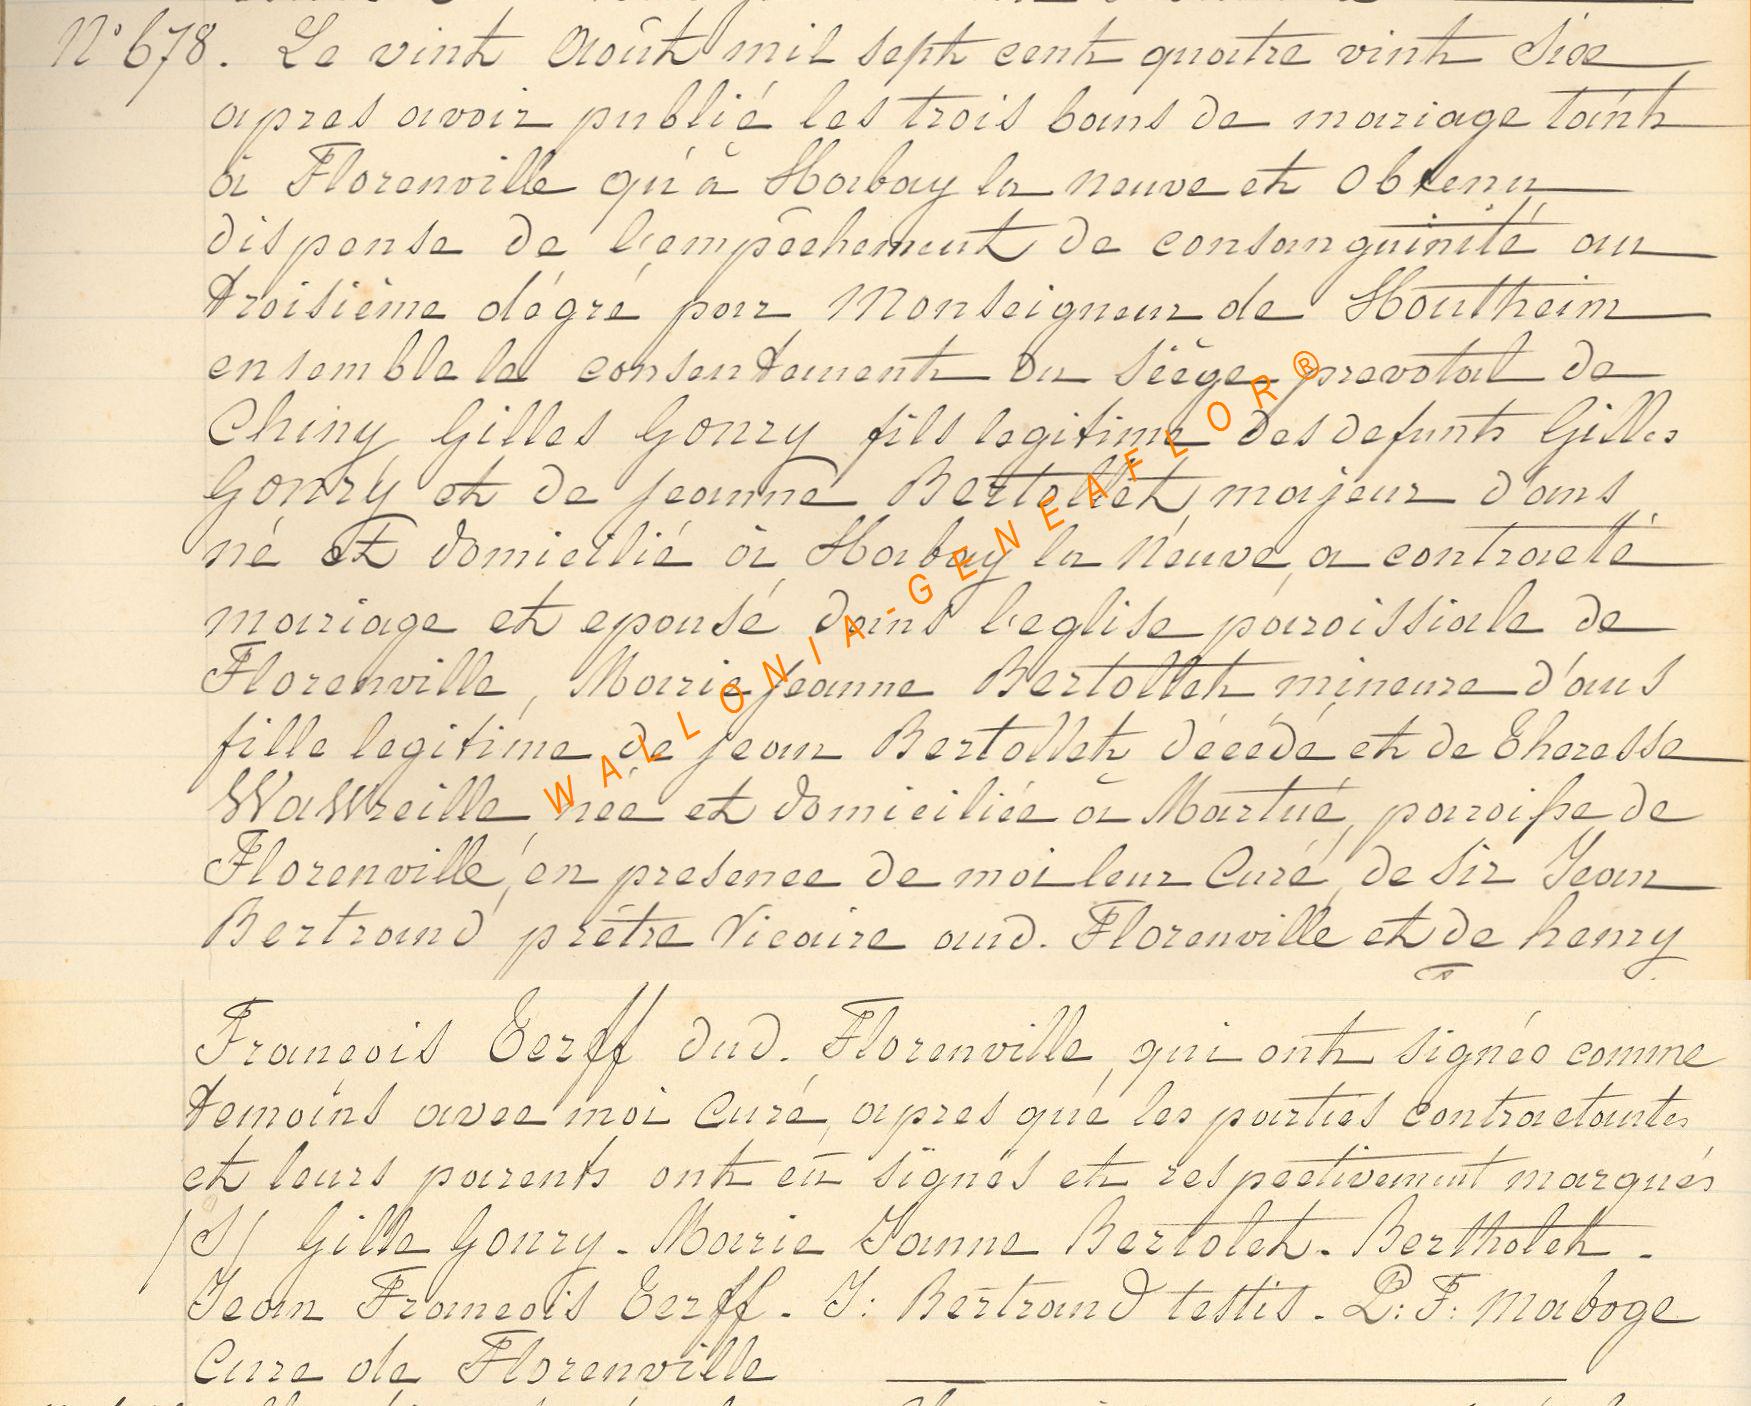 N° 678. Le vint Août mil sept cent quatre vint Six
apres avoir publié les trois bans de mariage tant
à Florenville qu'à Habay la neuve et obtenu
dispense de l'empêchement de consanguinité au
troisième dégré par Monseigneur de Houtheim
ensemble le consentement du Siège prevotal de
Chiny Gilles Gonry fils legitime des defunts Gilles
Gonry et de jeanne Bertollet, majeur d'ans
né et domicilié à Habay la Neuve, a contracté
mariage et epousé dans l'eglise paroissiale de
Florenville, Marie jeanne Bertollet mineure d'ans
fille legitime de jean Bertollet décédé et de Theresse
WaWreille née et domiciliée à Martué, paroisse de
Florenville, en presence de moi leur Curé, de Sir Jean
Bertrand prêtre Vicaire aud. Florenville et de henry
François Terff dud. Florenville, qui ont signés comme
temoins avec moi Curé, apres que les parties contractantes
et leurs parents ont eû signés et respectivement marqués
/S/ Gille Gonry - Marie Janne Bertolet - Bertholet -
Jean François Terff - J: Bertrand testis - P: F: Maboge
Cure de Florenville
WALLONIA-GENEAFLOR®